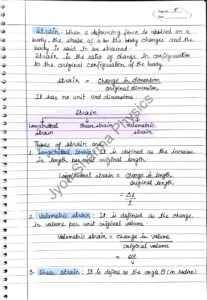 5
Strain: When a deforming force is applied on a
body, the shape of a or the body changes and the
body is said to be strained.
Strain is the ratio of change in configuration
to the original configuration of the body.
Strain = Change in dimension
original dimension
It has no unit and dimensions
Strain
Longitudinal Shear strain Volumetric
strain strain
Types of strain are:
Longitudinal strain: It is defined as the increase
in length per unit original length.
Longitudinal strain = Change in length
original length
= ΔL
L
2. Volumetric strain: It is defined as the change
in volume per unit original volume.
Volumetric strain = Change in volume
original volume
= ΔV
V
3. Shear strain: It is define as the angle θ (in radian)
Jyoti Sharma Physics